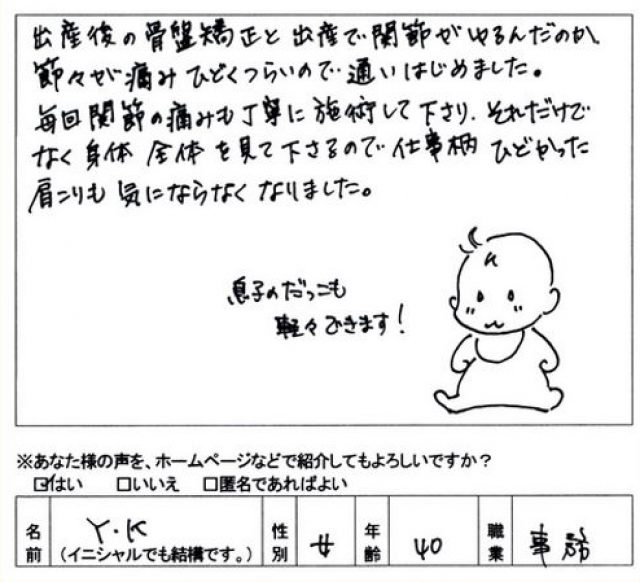 出産後の骨盤矯正と出産で関節がゆるんだのか、
節々が痛みひどくつらいので通いはじめました。
毎回関節の痛みも丁寧に施術して下さり、それだけで
なく身体全体を見て下さるので仕事柄ひどかった
肩こりも気にならなくなりました。
息子のだっこも
軽々できます!
※あなた様の声を、ホームページなどで紹介してもよろしいですか?
☑はい □いいえ □匿名であればよい
名前 Y・K (イニシャルでも結構です。) 性別 女 年齢 40 職業 事務